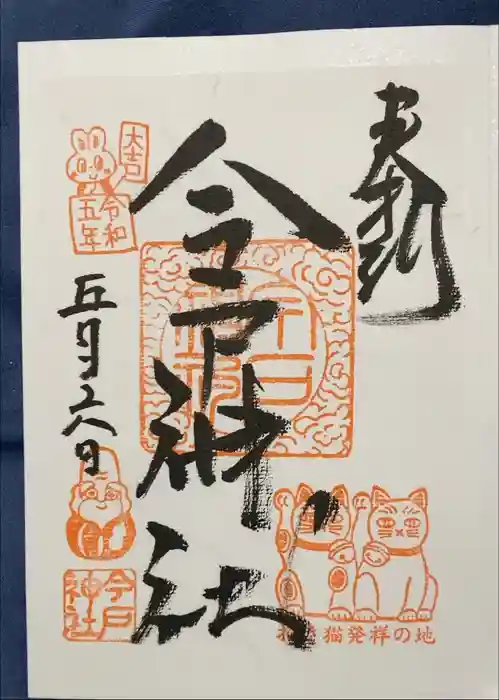 奉拝
今戸神社
今戸神社
招き猫発祥の地
大吉
令和
五年
五月
日
今戸
神社